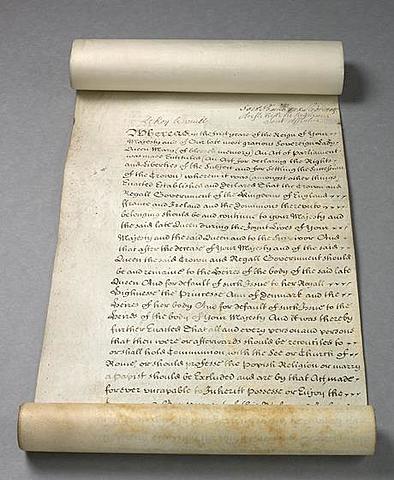 Le Roy le veult
Whereas in the first yeare of the Reign of Your
Majesty and of Our late most gracious Soveraign Lady
Queen Mary (of blessed memory) An Act of Parliament
was made Entituled An Act for declaring the Rights
and Liberties of the Subject and for Setling the Succession
of the Crown wherein it was amongst other things
Enacted Established and Declared That the Crown and
Regall Government of the Kingdoms of England
France and Ireland and the Dominions thereunto
belonging should be and continue to Your Majesty and
the said late Queen during the Joint Lives of Your
Majesty and the said Queen and to the Survivor And
that after the decease of Your Majesty and of the said
Queen the said Crown and Regall Government should
be and remaine to the Heires of the body of the said late
Queen And for default of such Issue to her Royall
Highnesse the Princesse Ann of Denmark and the
Heires of her body And for default of such Issue to the
Heires of the body of Your Majesty And it was thereby
further Enacted That all and every person and persons
that then were or afterwards should be reconciled to
or shall hold Communion with the See or Church of
Rome or should professe the Popish Religion or marry
a Papist should be Excluded and are by that Act made
forever uncapable to Inheritt Possesse or Enjoy the